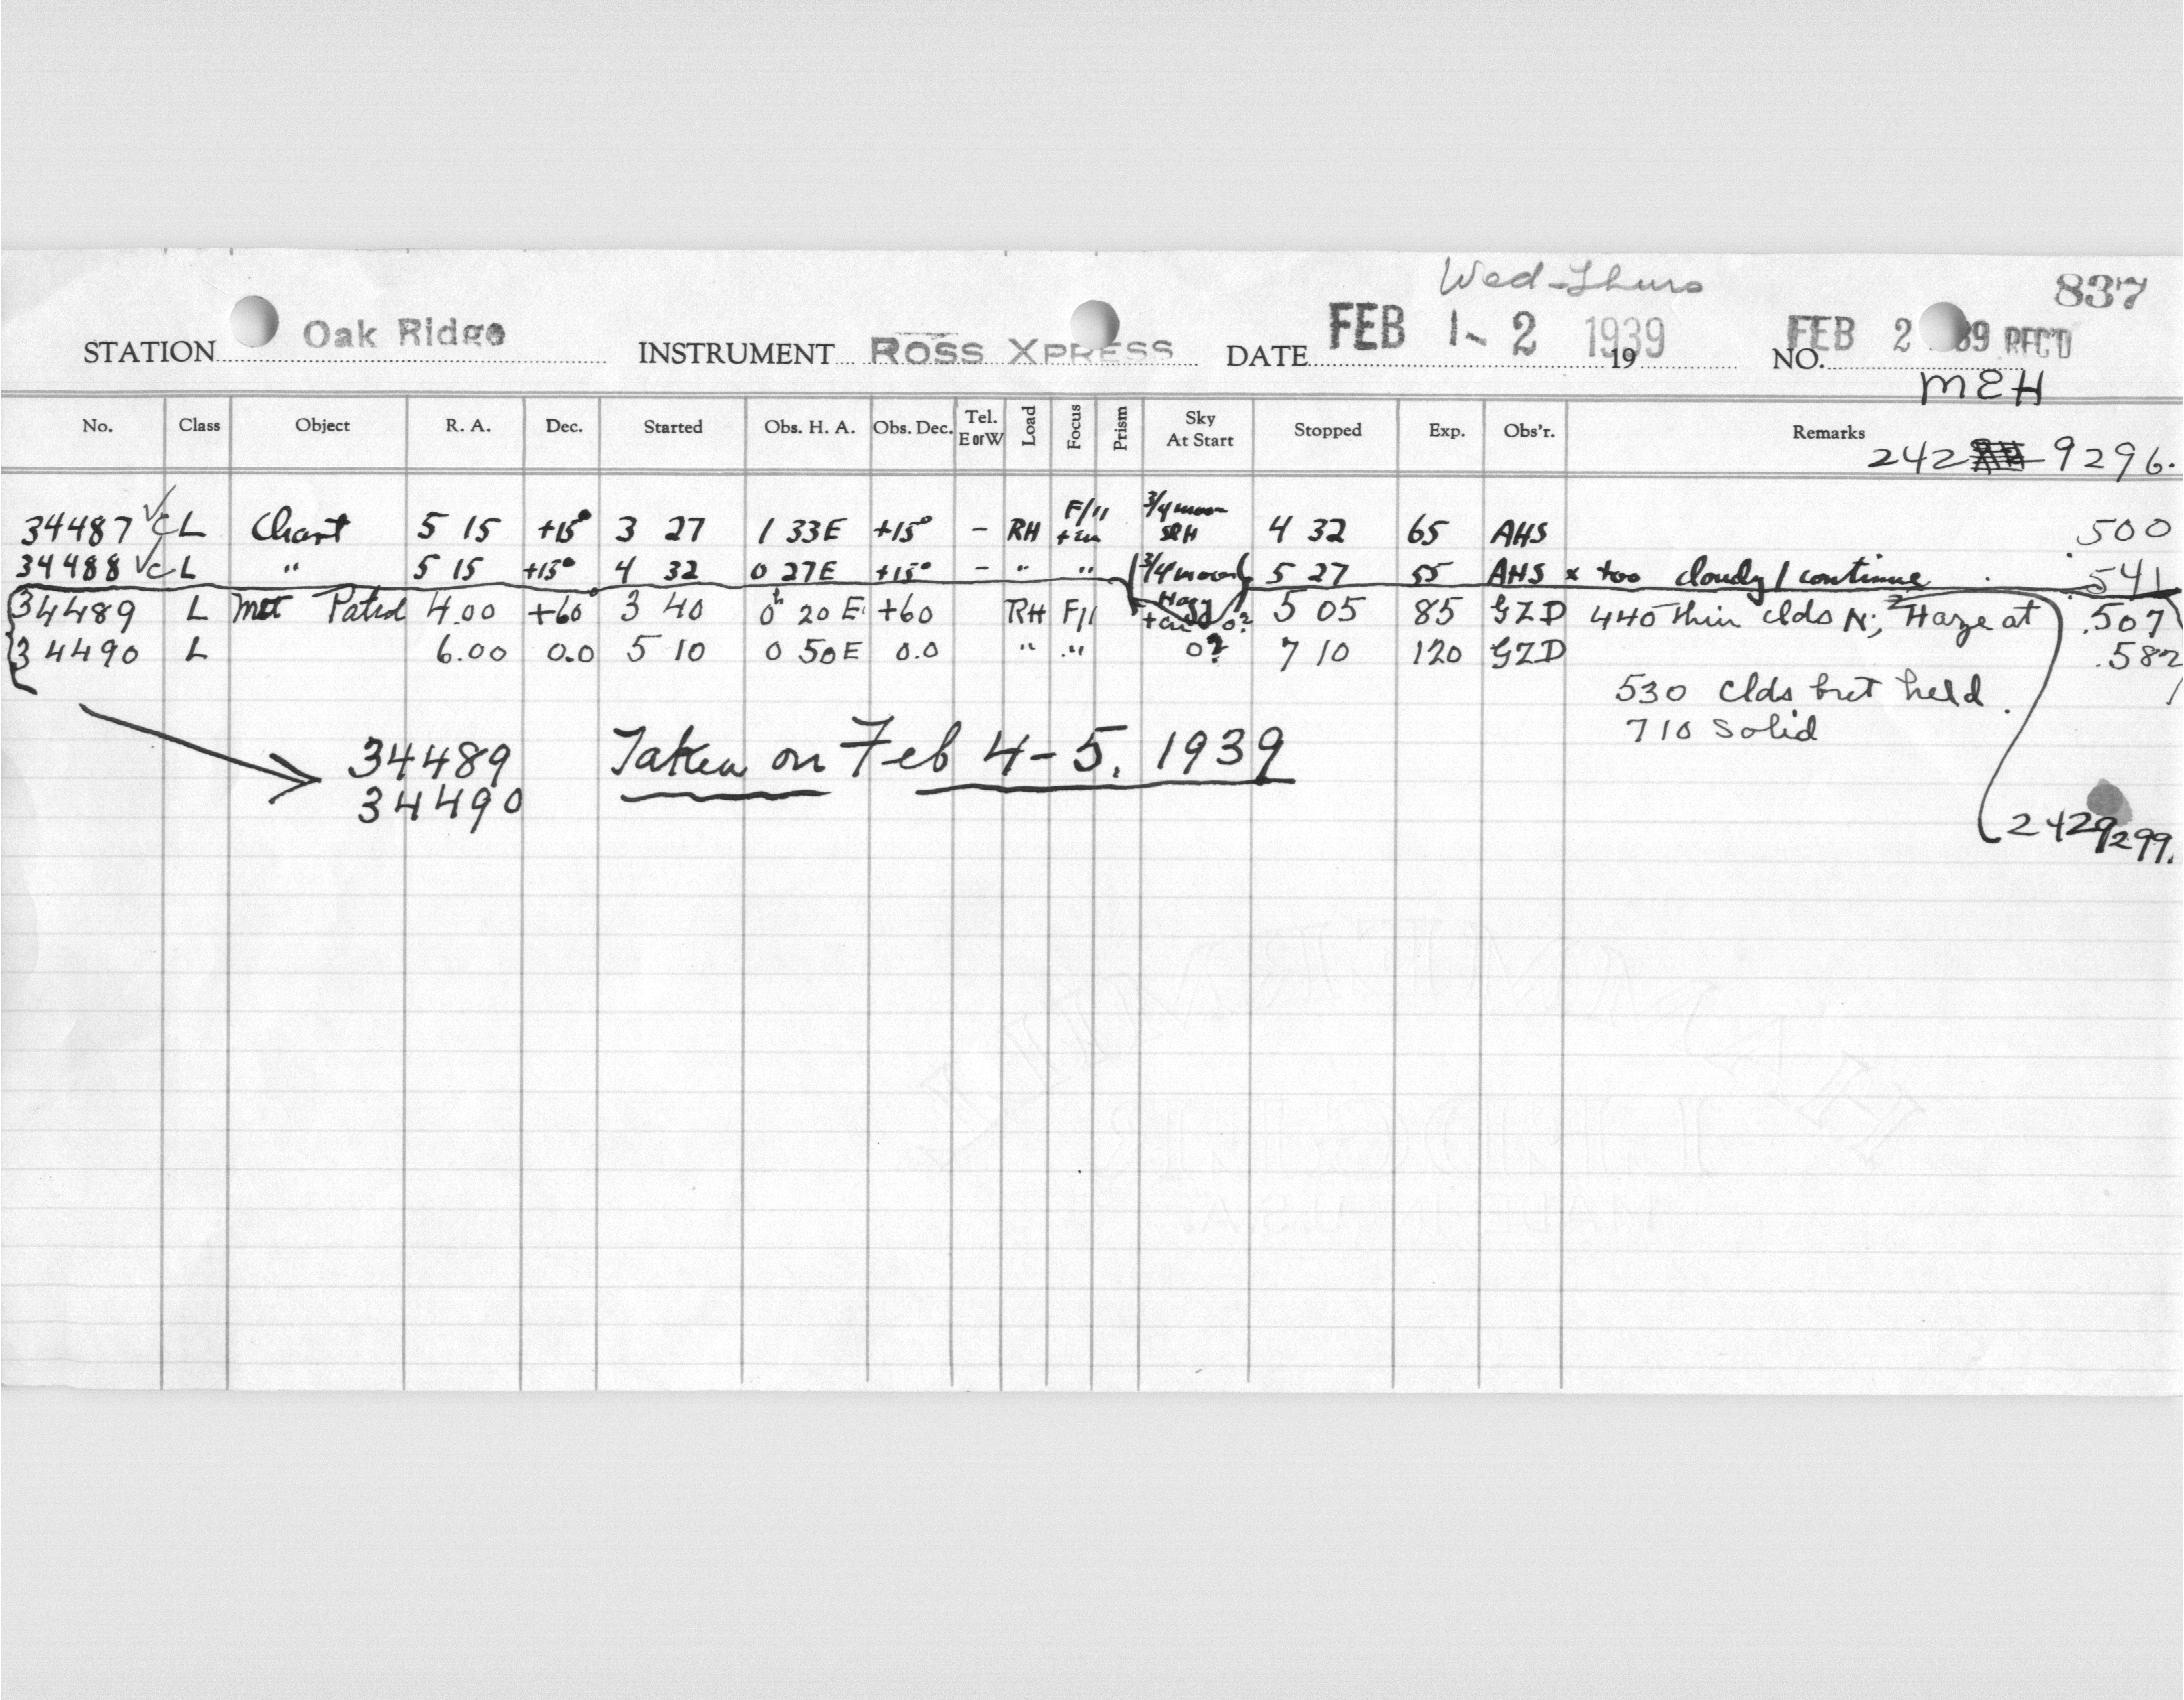 Wed-Thurs 837
STATION Oak Ridge INSTRUMENT ROSS XPRESS DATE FEB 1-2 1939 19 NO. FEB 2 39 REC'D
MEH
No. Class Object R. A. Dec. Started Obs. H. A. Obs. Dec. Tel. E or W Load Focus Prism Sky At Start Stopped Exp. Obs'r. Remarks
242 9296.
34487 √c L Chart 5 15 +15° 3 27 1 33E +15° - RH F/11 3/4 moon 4 32 65 AHS .500
34488 √c L " 5 15 +15° 4 32 0 27E +15° - " " 3/4 moon Hazy 5 27 55 AHS x too cloudy / continue .541
34489 L Met Patrol 4.00 +60° 3 40 0h 20 E +60 RH F11 0? 5 05 85 GZD 440 thin clds N; Haze at .507
34490 L 6.00 0.0 5 10 0 50E 0.0 " " 0? 7 10 120 GZD .582
530 clds but held.
710 Solid
34489 Taken on Feb 4-5, 1939
34490
2429299.